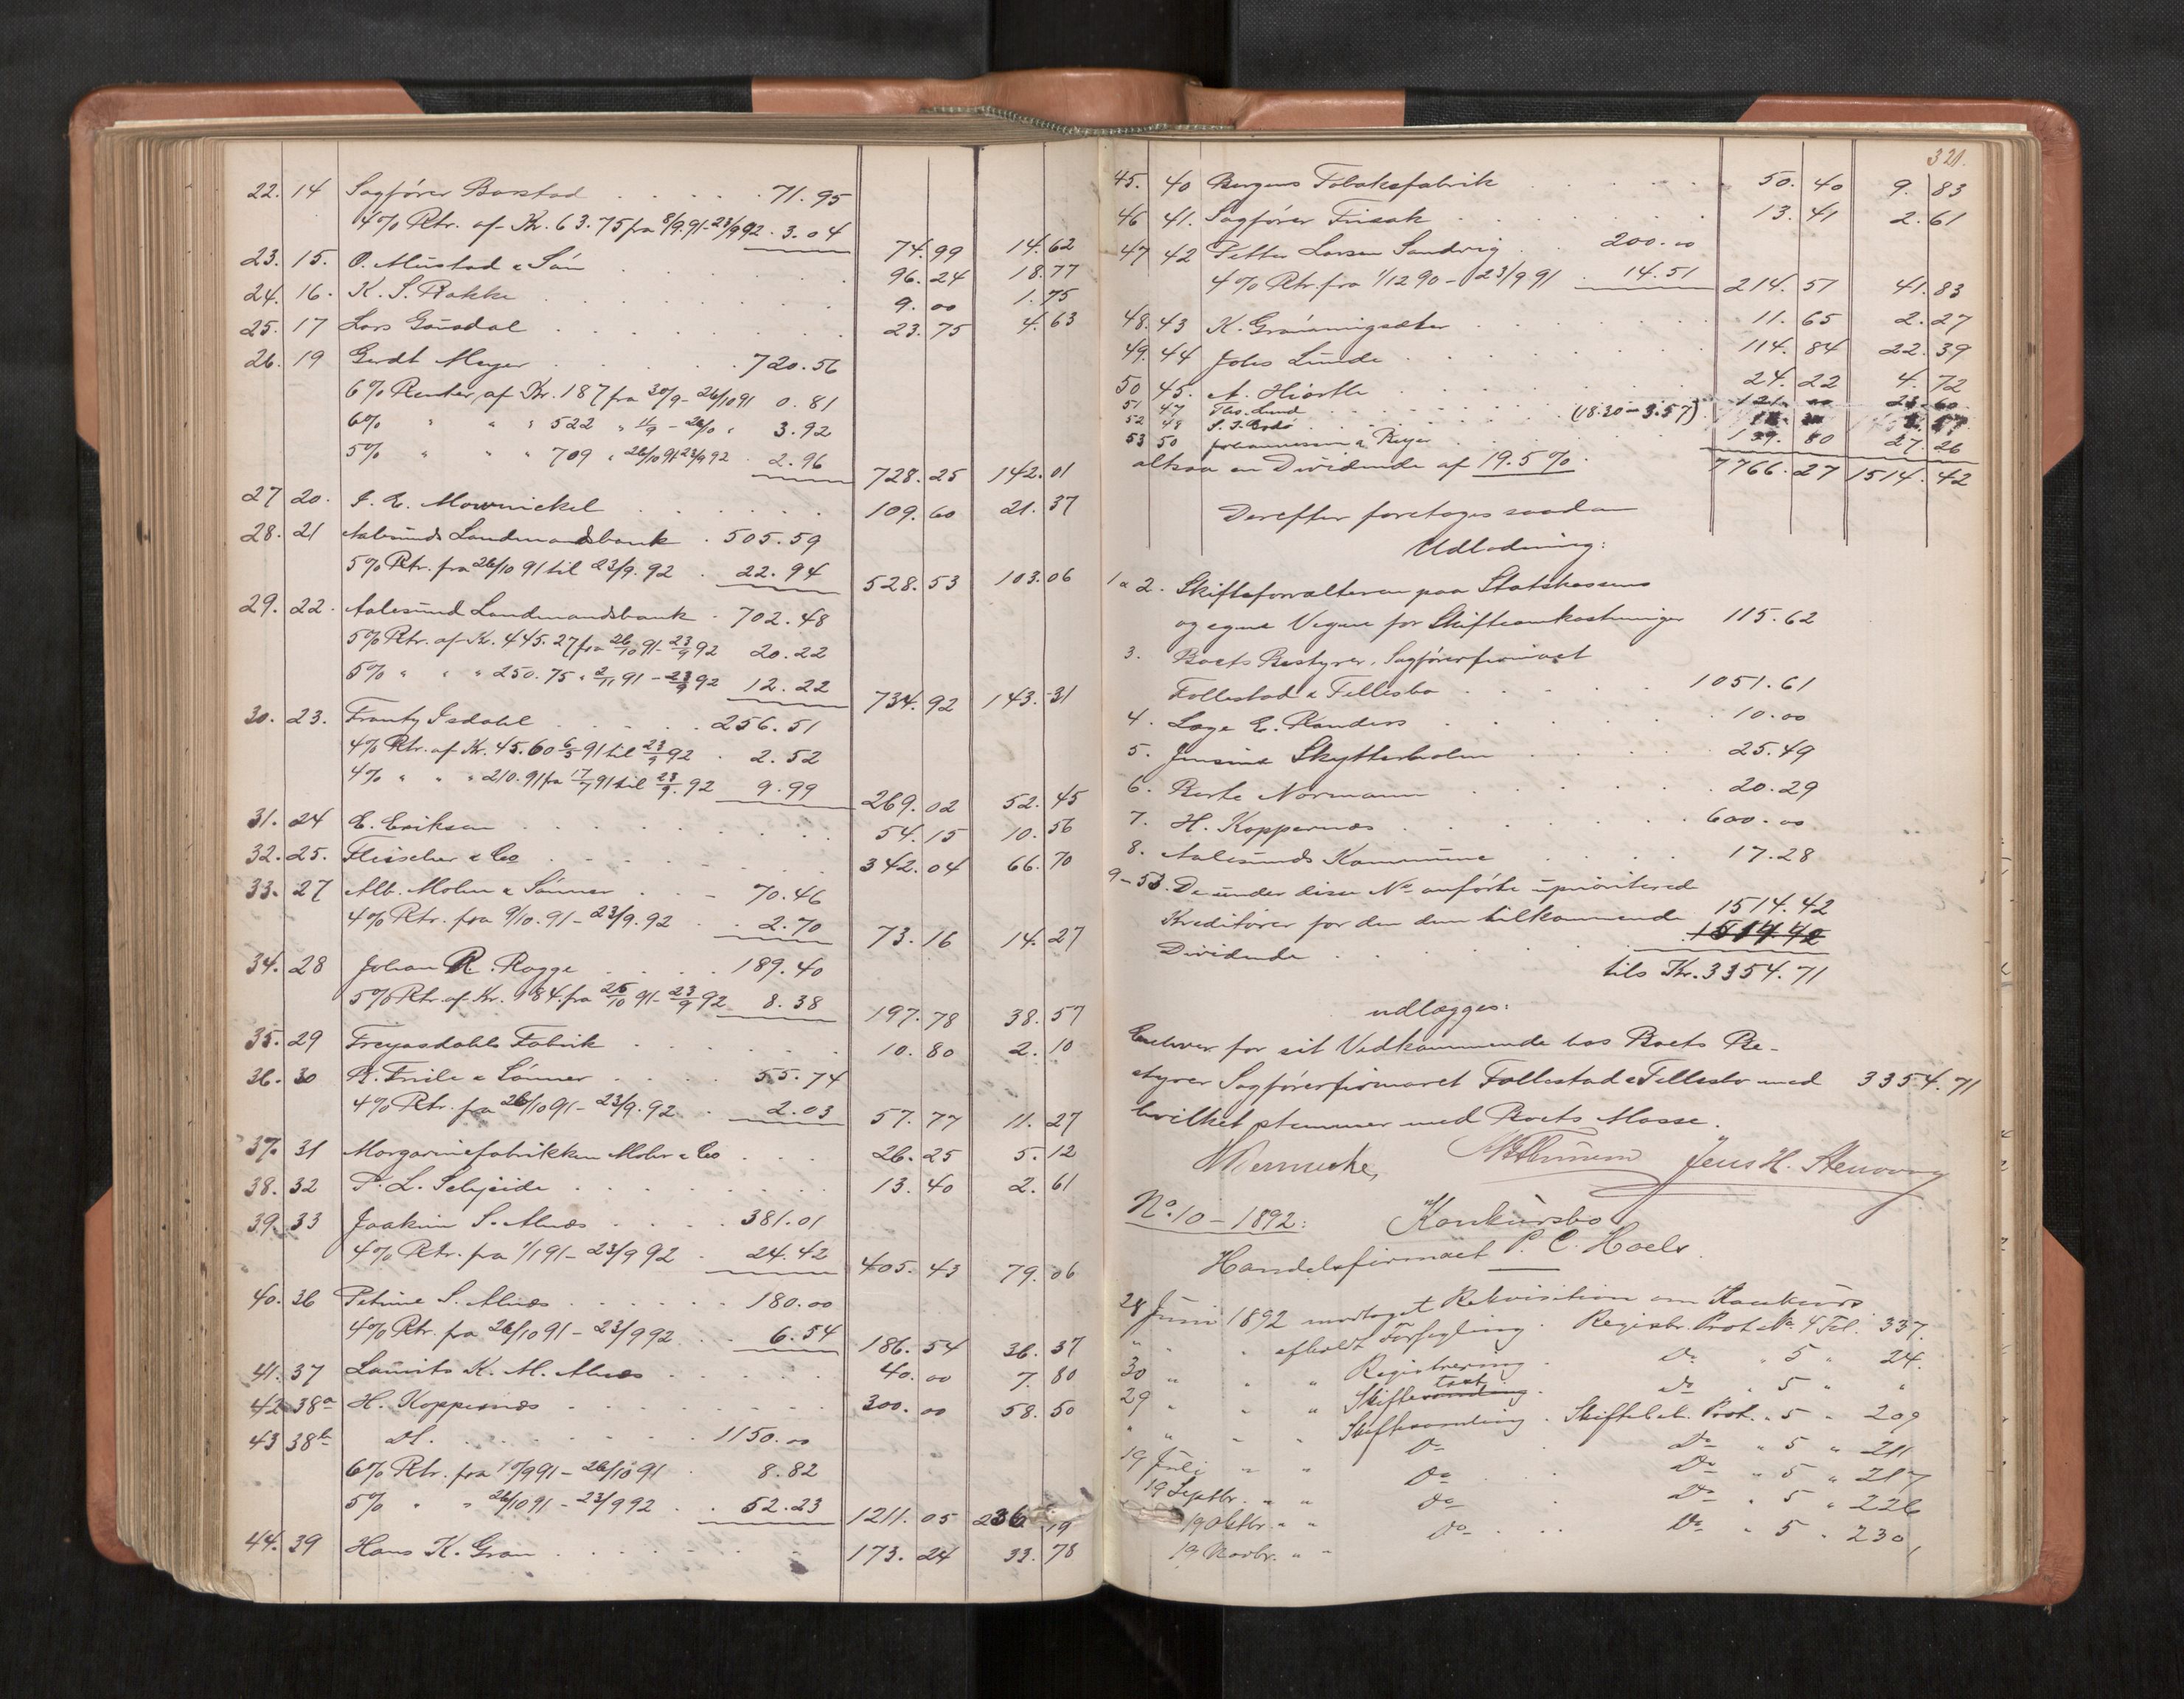 22. 14 Sagfører Barstad . . . . . 71.95
4% Rtr. af Kr. 63.75 fra 8/9.91-23/9 92 . 3.04 74.99 14.62
23. 15. O. Mustad & Søn . . . . 96.24 18.77
24. 16. K. S. Rakke . . . . 9.00 1.75
25. 17 Lars Gausdal . . . . 23.75 4.63
26. 19 Gerdt Meyer . . . . 720.56
6% Renter, af Kr. 187 fra 30/9-26/10 91 0.81
6% " " " 522 " 11/9 - 26/10 " 3.92
5% " " " 709 " 26/10 91 23/9 92 . 2.96 728.25 142.01
27 20. J. E. Mowinckel . . . . 109.60 21.37
28. 21 Aalesunds Landmandsbank . 505.59
5% Rtr. fra 26/10 91 til 23/9. 92 . 22.94 528.53 103.06
29. 22. Aalesund Landmandsbank . 702.48
5% Rtr. af Kr. 445.27 fra 26/10 91-23/9 92 20.22
5% " " " 250.75 " 2/11 91-23/9 92 12.22 734.92 143.31
30. 23. Frantz Isdahl . . . . 256.51
4% Rtr. af Kr. 45.60 6/5 91 til 23/9 92 . 2.52
4% " " " 210.91 fra 17/7 91 til 23/9. 92 9.99 269.02 52.45
31. 24 E. Eriksen . . . . 54.15 10.56
32. 25. Fleischer & Co . . . . 342.04 66.70
33. 27 Alb. Mohn & Sønner . . 70.46
4% Rtr. fra 9/10. 91-23/9. 92 . . 2.70 73.16 14.27
34. 28 Johan R. Rogge . . . . 189.40
5% Rtr. af Kr. 184. fra 26/10 91-23/9 92 8.38 197.78 38.57
35. 29 Freyasdahls Fabrik . . . . 10.80 2.10
36. 30 R. Friele & Sønner . . . . 55.74
4% Rtr. fra 26/10 91-23/9. 92 . . 2.03 57.77 11.27
37. 31 Margarinefabrikken Mohr & Co . . . 26.25 5.12
38. 32 P. L. Schjeide . . . . 13.40 2.61
39. 33 Joakim S. Alnæs . . . . 381.01
4% Rtr. fra 1/1 91-23/9 92 . 24.42 405.43 79.06
40. 36 Petrine S. Alnæs . . . . 180.00
4% Rtr. fra 26/10 91-23/9 92 . . 6.54 186.54 36.37
41. 37 Laurits K. M. Alnæs . . . . 40.00 7.80
42 38a H. Koppernæs . . . . 300.00 58.50
43 38b Dt. . . . . 1150.00
6% Rtr. fra 10/9 91-26/10 91 . 8.82
5% " " 26/10 91-23/9 92 . . 52.23 1211.05 236.19
44. 39 Hans K. Gran . . . . 173.24 33.78
321.
45. 40 Bergens Tobaksfabrik . . . . 50.40 9.83
46 41. Sagfører Frisak . . . . 13.41 2.61
47 42 Petter Larsen Sandvig . . 200.00
4% Rtr. fra 1/12 90-23/9 91 . 14.51 214.57 41.83
48. 43 K. Grønningsæter . . . . 11.65 2.27
49. 44 Johs Linde . . . . 114.84 22.39
50 45. A. Hiorth . . . . 24.22 4.72
51 47 Ths. Lund . . . . 121.00 23.60
52 48 (18.30 - 3.57)
53 50 Johannessen & . . . . 139.80 27.26
altsaa en Dividende af 19.5 % . 7766.27 1514.42
Derefter foretages saadan
Udlodning:
1 a 2. Skifteforvalteren paa Statskassens
og egne Vegne for Skifteomkostninger 115.62
3. Boets Bestyrer, Sagførerfirmaet
Follestad & Fellesbo . . . . 1051.61
4. Læge E. Randers . . . . 10.00
5. Jensine Skytterholm . . . . 25.49
6. Berte Normann . . . . 20.29
7. H. Koppernæs . . . . 600.00
8. Aalesunds Kommune . . . . 17.28
9-53. De under disse No anførte upriioriterede
Kreditorer for den dem tilkommende 1514.42
Dividende . . . . 1514.42
tils Kr. 3354.71
udlægges:
Enhver for sit Vedkommende hos Boets Be-
styrer Sagførerfirmaet Follestad & Fellesbo med 3354.71
hvilket stemmer med Boets Masse.
Jens H. Stenvaag
No. 10 - 1892: Konkursbo
Handelsfirmaet P. C. Hoels.
28 Juni 1892 modtaget Rekvisition om Konkurs
" " " afholdt Forsegling . Registr. Prot. No 4 Fol. 337.
30 " " " Registrering . Do " 5 " 24.
29 " " " Skiftesamling taxt . Do " 5 " "
" " " " Skiftesamling . Skiftebeh. Prot. " 5 " 209
19 Juli " " Do . Do " 5 " 211
19 Septbr. " " Do . . Do " 5 " 217
19 Oktbr. " " Do . Do " 5 " 226
19 Novbr. " " Do . . . Do " 5 " 230,